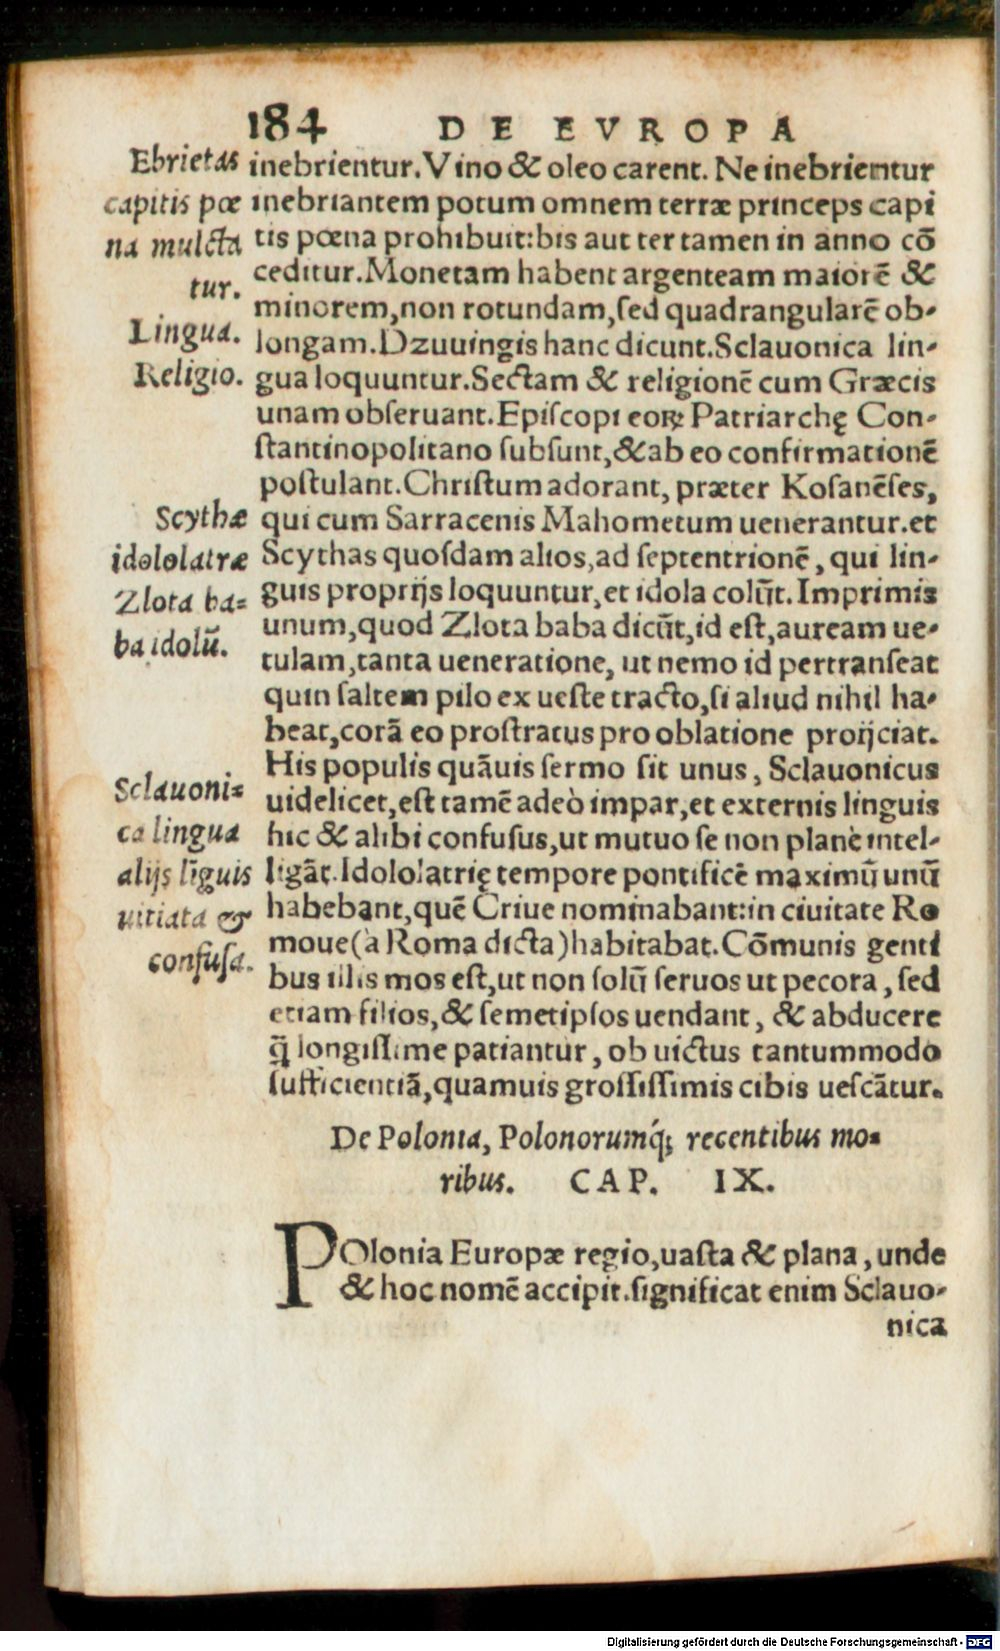 184 DE EVROPA
Ebrietas
capitis pœ
na mulcta
tur.
Lingua.
Religio.
inebrientur. Vino & oleo carent. Ne inebrientur
inebriantem potum omnem terræ princeps capi
tis pœna prohibuit: bis aut ter tamen in anno cõ
ceditur. Monetam habent argenteam maiorẽ &
minorem, non rotundam, sed quadrangularẽ ob-
longam. Dzuuingis hanc dicunt. Sclauonica lin-
gua loquuntur. Sectam & religionẽ cum Græcis
unam obseruant. Episcopi eoꝝ Patriarchę Con-
stantinopolitano subsunt, & ab eo confirmationẽ
postulant. Christum adorant, præter Kosanẽses,
Scythæ
idololatræ
Zlota ba-
ba idolũ.
qui cum Sarracenis Mahometum uenerantur. et
Scythas quosdam alios, ad septentrionẽ, qui lin-
guis proprijs loquuntur, et idola colũt. Imprimis
unum, quod Zlota baba dicũt, id est, auream ue-
tulam, tanta ueneratione, ut nemo id pertranseat
quin saltem pilo ex ueste tracto, si aliud nihil ha-
beat, corã eo prostratus pro oblatione proijciat.
Sclauoni-
ca lingua
alijs lĩguis
uitiata &
confusa.
His populis quãuis sermo sit unus, Sclauonicus
uidelicet, est tamẽ adeò impar, et externis linguis
hic & alibi confusus, ut mutuo se non planè intel-
ligãt. Idololatrię tempore pontificẽ maximũ unũ
habebant, quẽ Criue nominabant: in ciuitate Ro
moue (à Roma dicta) habitabat. Cõmunis genti
bus illis mos est, ut non solũ seruos ut pecora, sed
etiam filios, & semetipsos uendant, & abducere
q̃ longissime patiantur, ob uictus tantummodo
sufficientiã, quamuis grossissimis cibis uescãtur.
De Polonia, Polonorumq́; recentibus mo-
ribus. CAP. IX.
POlonia Europæ regio, uasta & plana, unde
& hoc nomẽ accipit. significat enim Sclauo-
nica
Digitalisierung gefördert durch die Deutsche Forschungsgemeinschaft - DFG